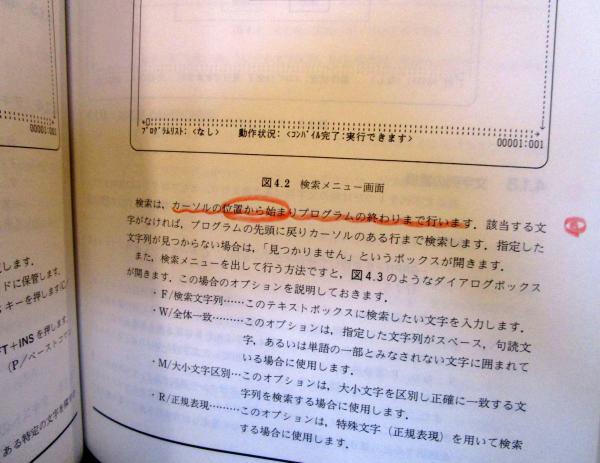 00001:001
ﾌﾟﾛｸﾞﾗﾑﾘｽﾄ: <なし> 動作状況: <ｺﾝﾊﾟｲﾙ完了:実行できます> 00001:001
図4.2 検索メニュー画面
検索は、カーソルの位置から始まりプログラムの終わりまで行います．該当する文
字がなければ，プログラムの先頭に戻りカーソルのある行まで検索します．指定した
文字列が見つからない場合は，「見つかりません」というボックスが開きます．
また，検索メニューを出して行う方法ですと，図4.3のようなダイアログボックス
が開きます．この場合のオプションを説明しておきます．
・F/検索文字列……このテキストボックスに検索したい文字を入力します．
・W/全体一致………このオプションは，指定した文字列がスペース，句読文
字，あるいは単語の一部とみなされない文字に囲まれて
いる場合に使用します．
・M/大小文字区別…このオプションは，大小文字を区別し正確に一致する文
字列を検索する場合に使用します．
・R/正規表現………このオプションは，特殊文字（正規表現）を用いて検索
する場合に使用します．
します．
ドに保管します．
キーを押します
FT＋INSを押します．
(P/ペースト
ある特定の文字を